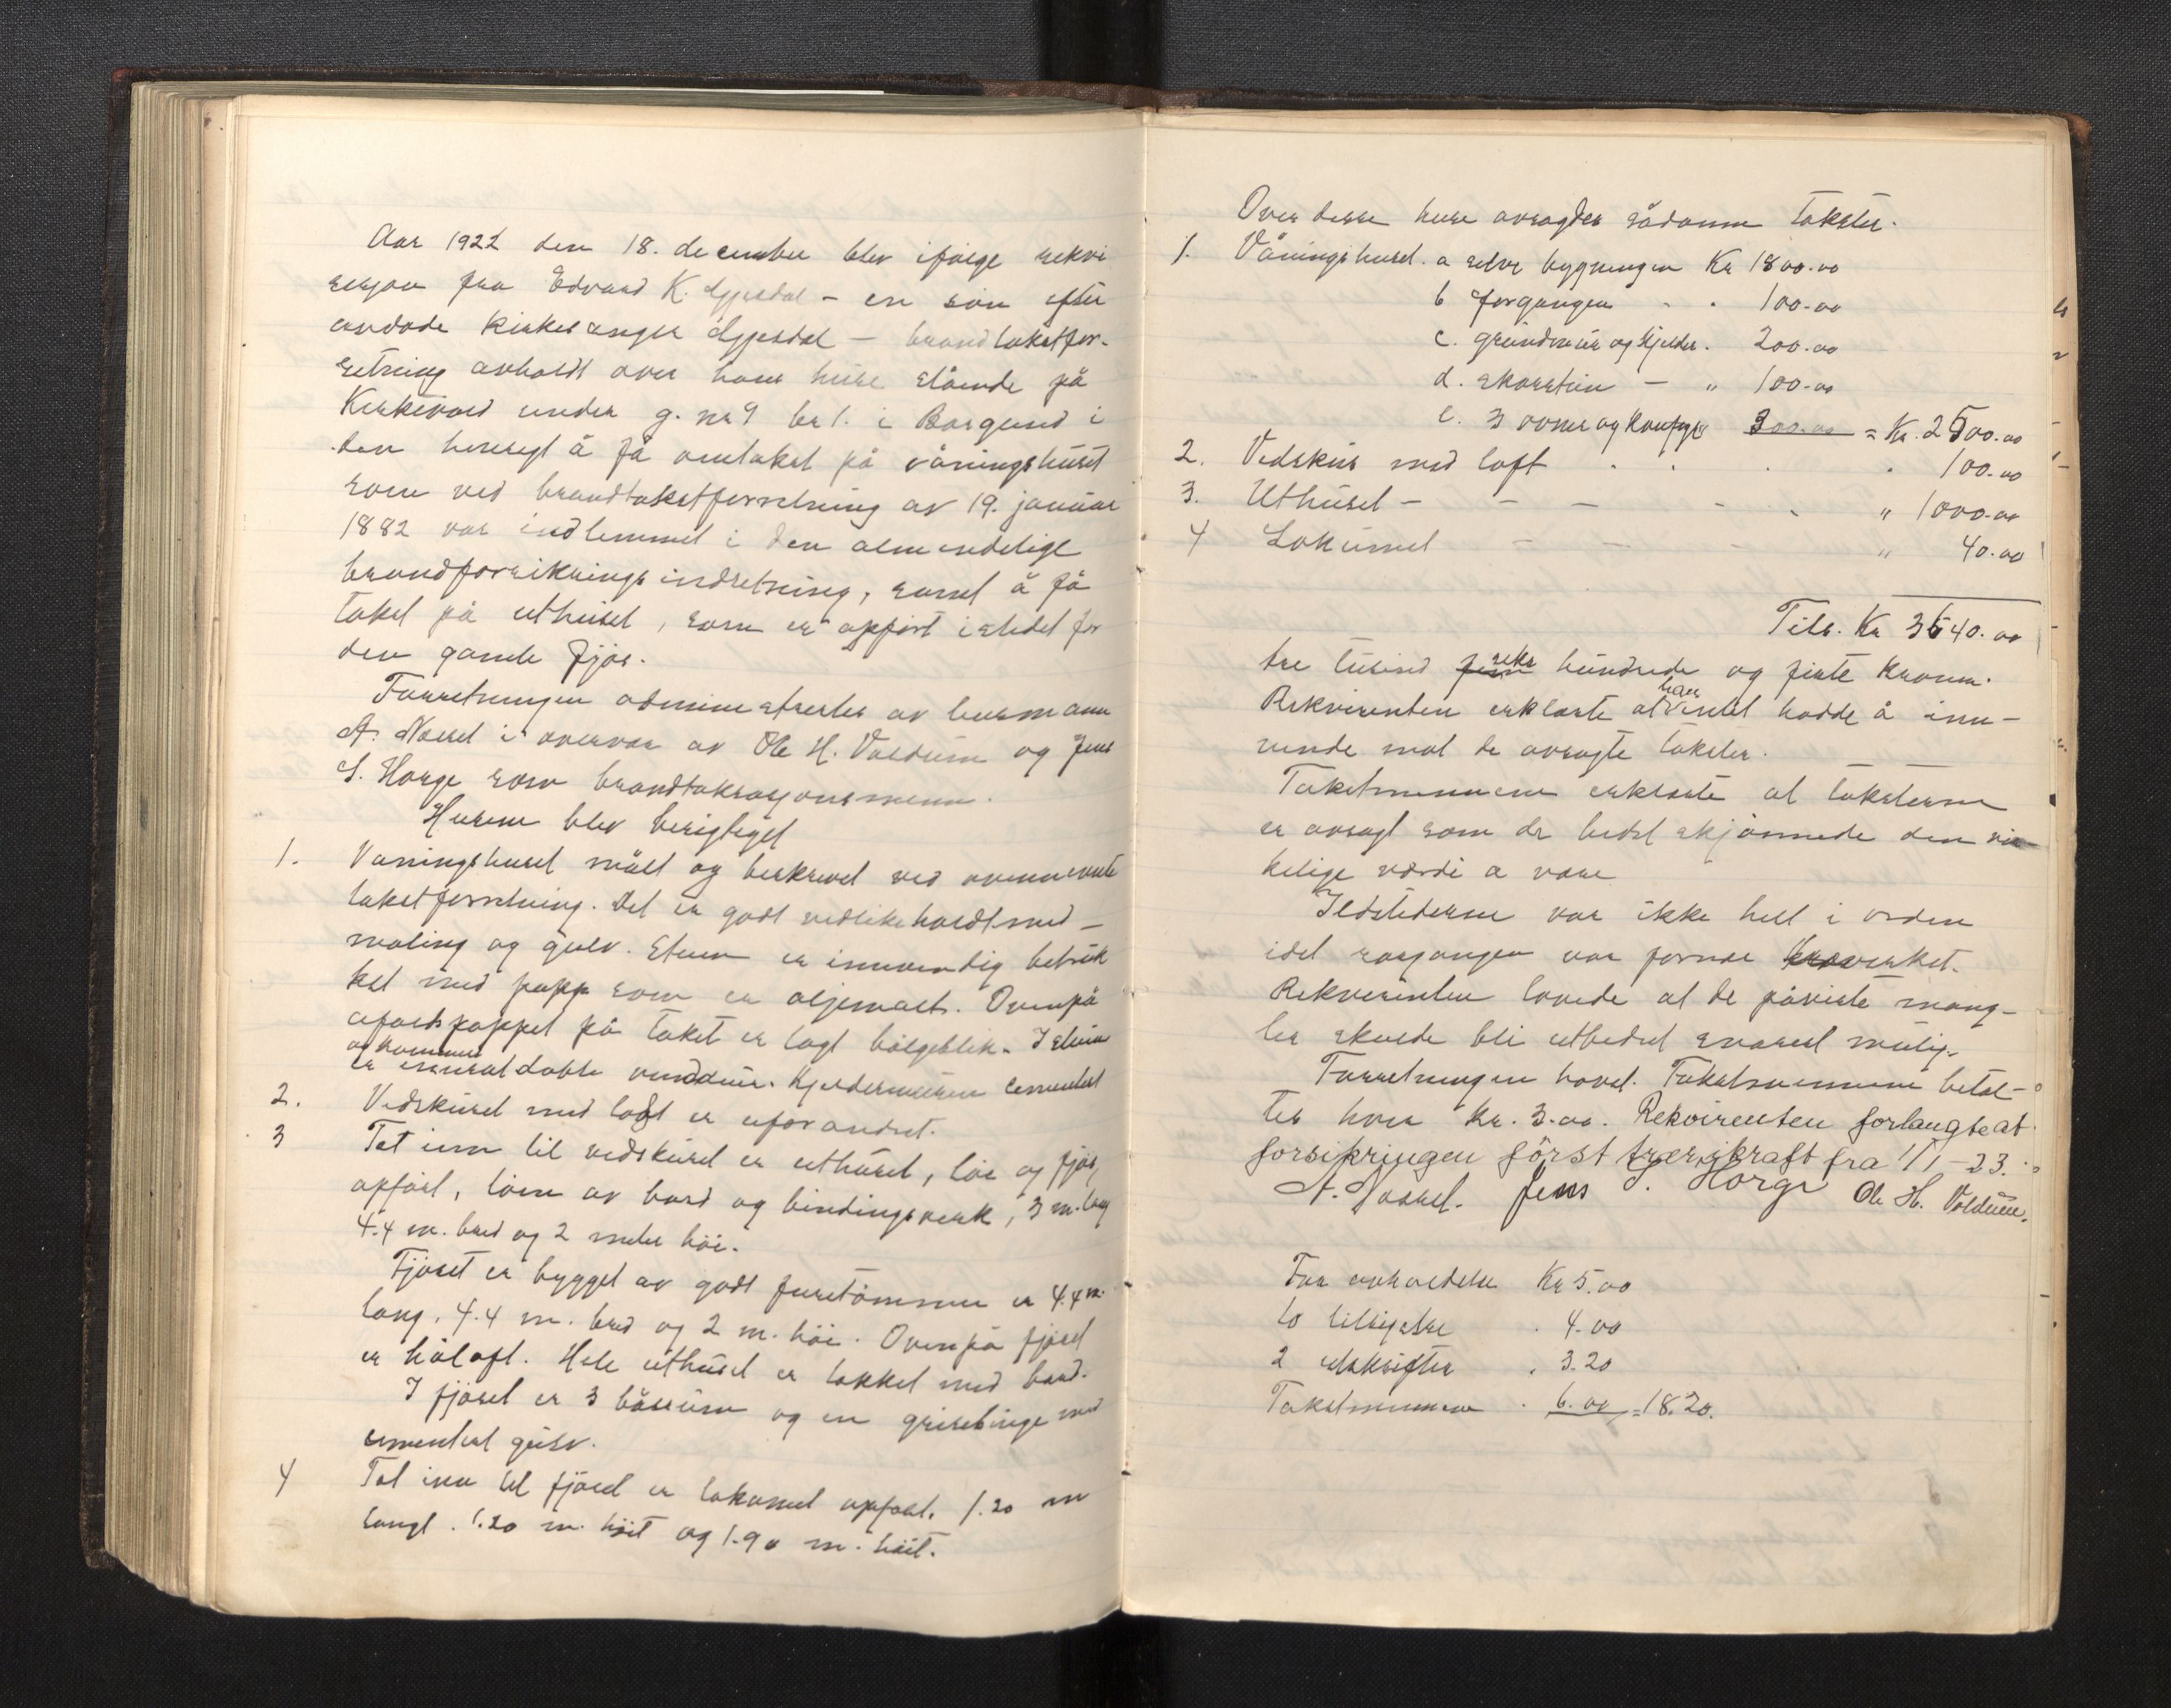 Aar 1922 den 18. december blev ifølge rekvi
sisjon fra Edvard K. Gjesdal – en søn efter
avdøde kirkesanger Gjesdal – brandtakstfor-
retning avholdt over hans huse stående på
Kirkevold under g. nr 9 br 1. i Borgund i
den hensegt å få omtakst på våningshuset
som ved brandtakstforretning av 19. januar
1882 var indlemmet i den almindelige
brandforsikringsindretning, samt å få
takst på uthuset, som er opført istedet for
den gamle fjøs.
Forretningen administrertes av lensmann
A. Næsset i overvær av Ole H. Voldum og Jens
S. Horge som brandtaksasjonsmenn.
Husene blev besigtiget
1. Vaningshuset målt og beskrevet ved ovennevnte
takstforretning. Det er godt vedlikeholdt med
maling og gulv. Stuen er innvendig betræk
ket med papp som er oljemalt. Ovenpå
asfaltpappet på taket er lagt bølgeblik. I stuen
og kammer
er innsat doble vinduer. Kjeldermuren cementert
2. Vedskuret med loft er uforandret.
3 Tet inn til vedskuret er uthuset, løe og fjøs,
opført, løen av bord og bindingsverk, 3 m. lang
4.4 m. bred og 2 meter høi.
Fjøset er bygget av godt furetømmer er 4.4 m.
lang, 4.4 m. bred og 2 m. høi. Ovenpå fjøset
er høloft. Hele uthuset er takket med bord.
I fjøset er 3 båsrum og en grisebinge med
cementert gulv.
4 Tet inn til fjøset er lokumet opført. 1.20 m
langt. 1.20 m. høit og 1.90 m. høit.
Over disse huse avsagdes sådanne takster.
1. Våningshuset. a selve bygningen Kr 1800.00
b forgangen " 100.00
c. grundmur og kjelder. 200.00
d. skorstein — " 100.00
e. 3 ovner og komfyr 300.00 = Kr. 2500.00
2. Vedskur med loft . . . . 100.00
3. Uthuset — — — — " 1000.00
4 Lokumet — — — " 40.00
Tils. Kr 3640.00
seks
tre tusind fem hundrede og firti kroner.
han
Rekvirenten erklærte at intet hadde å inn-
vende mot de avsagte takster.
Takstmennene erklærte at taksterne
er avsagt som de bedst skjønnede den vir-
kelige værdi a være
Ildstederne var ikke helt i orden
idet
Rekvirenten lovede at de påviste mang-
ler skulde bli utbedret snarest mulig.
Forretningen hævet. Takstmennene betal-
tes hver kr. 3.00. Rekvirenten forlangte at
forsikringen först trær i kraft fra 1/1 – 23.
A. Næsset. Jens S. Horge Ole H. Voldum.
For avholdelse Kr 5.00
10 4.00
2 utskrifter . 3.20
Takstmennene . 6.00 = 18.20.